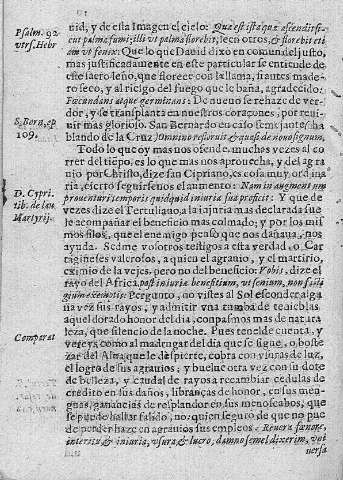 Psalm. 92.
vers. Hebr
nid, y de esta Imagen el cielo: Quæ est ista quæ ascendit sicut
palma fumi; illi vt palma florebit, leen otros, & florebit etiam
vt fenix: Que lo que Dauid dixo en comun del justo,
mas justificadamente en este particular se entiende de
este sacro leño, que florece con la llama, si antes madero
seco, y al riesgo del fuego que le baña, agradecido:
Facundans atque germinans: De nueuo se rehaze de verdor,
y se transplanta en nuestros coraçones, por reuiuir
S. Bern. ep
109.
mas glorioso. San Bernardo en caso semejante hablando
de la Cruz: Omnino refloruit
Todo lo que oy mas nos ofende, muchas vezes al correr
del tiẽpo, es lo que mas nos aprouecha, y del agrauio
D. Cypri.
lib. de lau.
Martyrij.
por Christo, dize san Cipriano, es cosa muy ordinaria,
cierto seguirsenos el aumento: Nam in augmentum
prouentur temporis quidquid iniuria sua proficit: Y que de
vezes dize el Tertuliano, a la injuria mas declarada fue
le acompañar el beneficio mas calmado; y por los mismos
filos, que el enemigo pensò que nos dañaua, nos
ayuda. Sedme vosotros testigos a esta verdad, o Cartagineses
valerosos, a quien el agrauio, y el martirio,
eximio de la vejez, pero no del beneficio: Vobis, dize el
rayo del Africa, post iniuriæ beneficium, vt senium, non
Pregunto, no vistes al Sol esconder alguna
vez sus rayos, y admitir vna tumba de tenieblas
aquel dorado honor del dia, conpasmos mas de naturaleza,
que silencio de la noche. Pues tened cuenta, y
Comparat
vereys como al madrugar del dia que se sigue, o bostezar
del Alua que le despierte, cobra con vsuras de luz,
el logro de sus agrauios; y buelue otra vez con su dote
de belleza, y caudal de rayos a recambiar cedulas de
credito en sus daños, libranças de honor, en sus menguas,
ganancias de resplandor en sus menoscabos, que
se puede hallar fallido, no quien seguro de que no puede
perder haze en agrauios sus empleos: Reuera fænore,
interitu & iniuria, vsura & lucro, damno semel dixerim, vniuersa